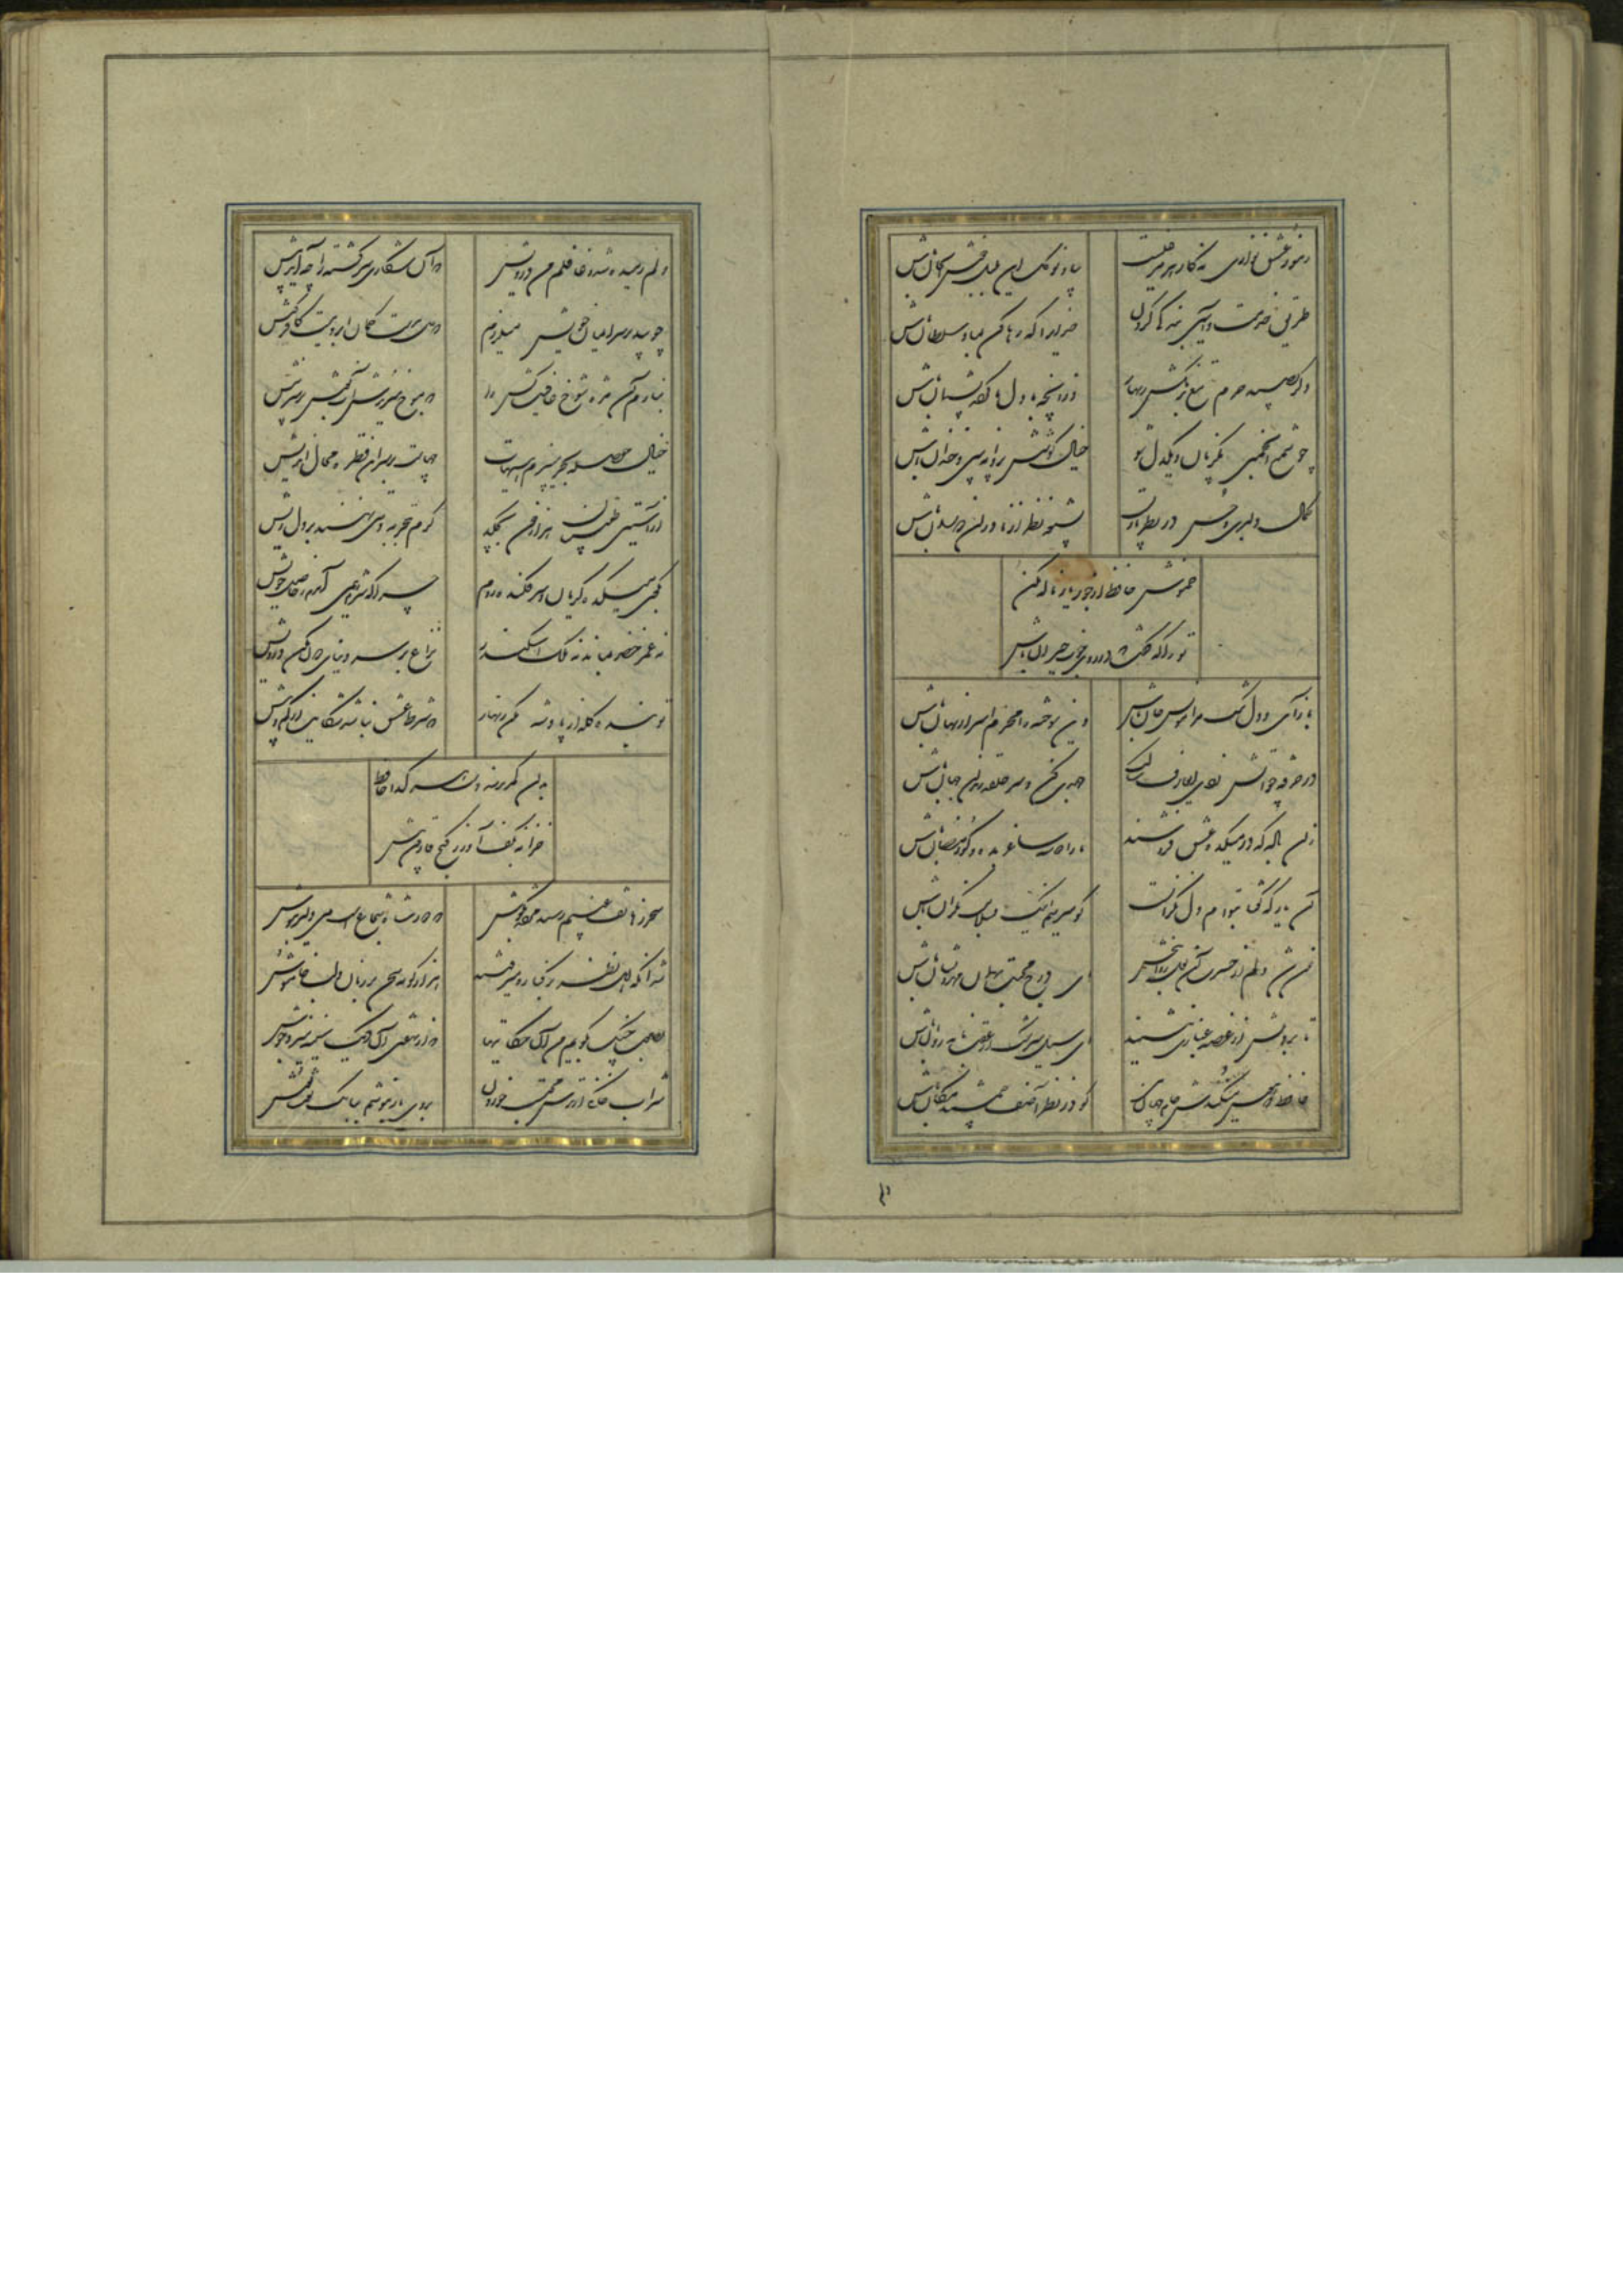 رموز عشق نوازی نه کار هر مرغیست
بیا و نوگل این بلبل خوش الحان باش
طریق خدمت و آیین بندگی کردن
خدای را که رها کن بما و سلطان باش
دگر بصید حرم تیغ برمکش زنهار
وزانچه با دل ما کرده پشیمان باش
تو شمع انجمنی یکزبان و یکدل شو
خیال کوشش پروانه بین و خندان باش
کمال دلبری و حسن در نظر بازیست
بشیوه نظر از نادران دوران باش
خموش حافظ و از جور یار ناله مکن
ترا که گفت که در روی خوب حیران باش
باز آی و دل تنگ مرا مونس جان باش
وین سوخته را محرم اسرار نهان باش
در خرقه چو آتش زدی ای عارف سالک
جهدی کن و سر حلقه رندان جهان باش
زان باده که در میکده عشق فروشند
ما را دو سه ساغر بده و گو رمضان باش
آن یار که گفتا بتوام دل نگرانست
گو میرسم اینک بسلامت نگران باش
خون شد دلم از حسرت آن لعل روانبخش
ای درج محبت بهمان مهر و نشان باش
تا بر دلش از غصه غباری ننشیند
ای سیل سرشک از عقب نامه روان باش
حافظ که هوس میکندش جام جهان بین
گو در نظر آصف جمشید مکان باش
دلم رمیده شد و غافلم من درویش
که آن شکاری سرگشته را چه آمد پیش
چو بید بر سر ایمان خویش میلرزم
که دل بدست کمان ابروییست کافرکیش
بنازم آن مژه شوخ عافیت کش را
که موج میزندش آب نوش بر سر نیش
خیال حوصله بحر می پزم هیهات
چهاست در سر این قطره محال اندیش
ز آستین طبیبان هزار خون بچکد
گرم بتجربه دستی نهند بر دل ریش
بکوی میکده گریان و سر فکنده روم
چرا که شرم همی آیدم ز حاصل خویش
نه عمر خضر بماند نه ملک اسکندر
نزاع بر سر دنیای دون مکن درویش
تو بنده گله از پادشه مکن زنهار
که شرط عشق نباشد شکایت از کم و بیش
بدان کمر نرسد دست هر گدا حافظ
خزانه بکف آور ز گنج قارون بیش
سحر ز هاتف غیبم رسید مژده بگوش
که دور شاه شجاعست می دلیر بنوش
شد آنکه اهل نظر بر کناره میرفتند
هزار گونه سخن بر زبان و لب خاموش
بصوت چنگ بگوییم آن حکایتها
که از نهفتن آن دیگ سینه میزد جوش
شراب خانگی از ترس محتسب خوردن
بروی یار بنوشیم و بانگ نوشانوش